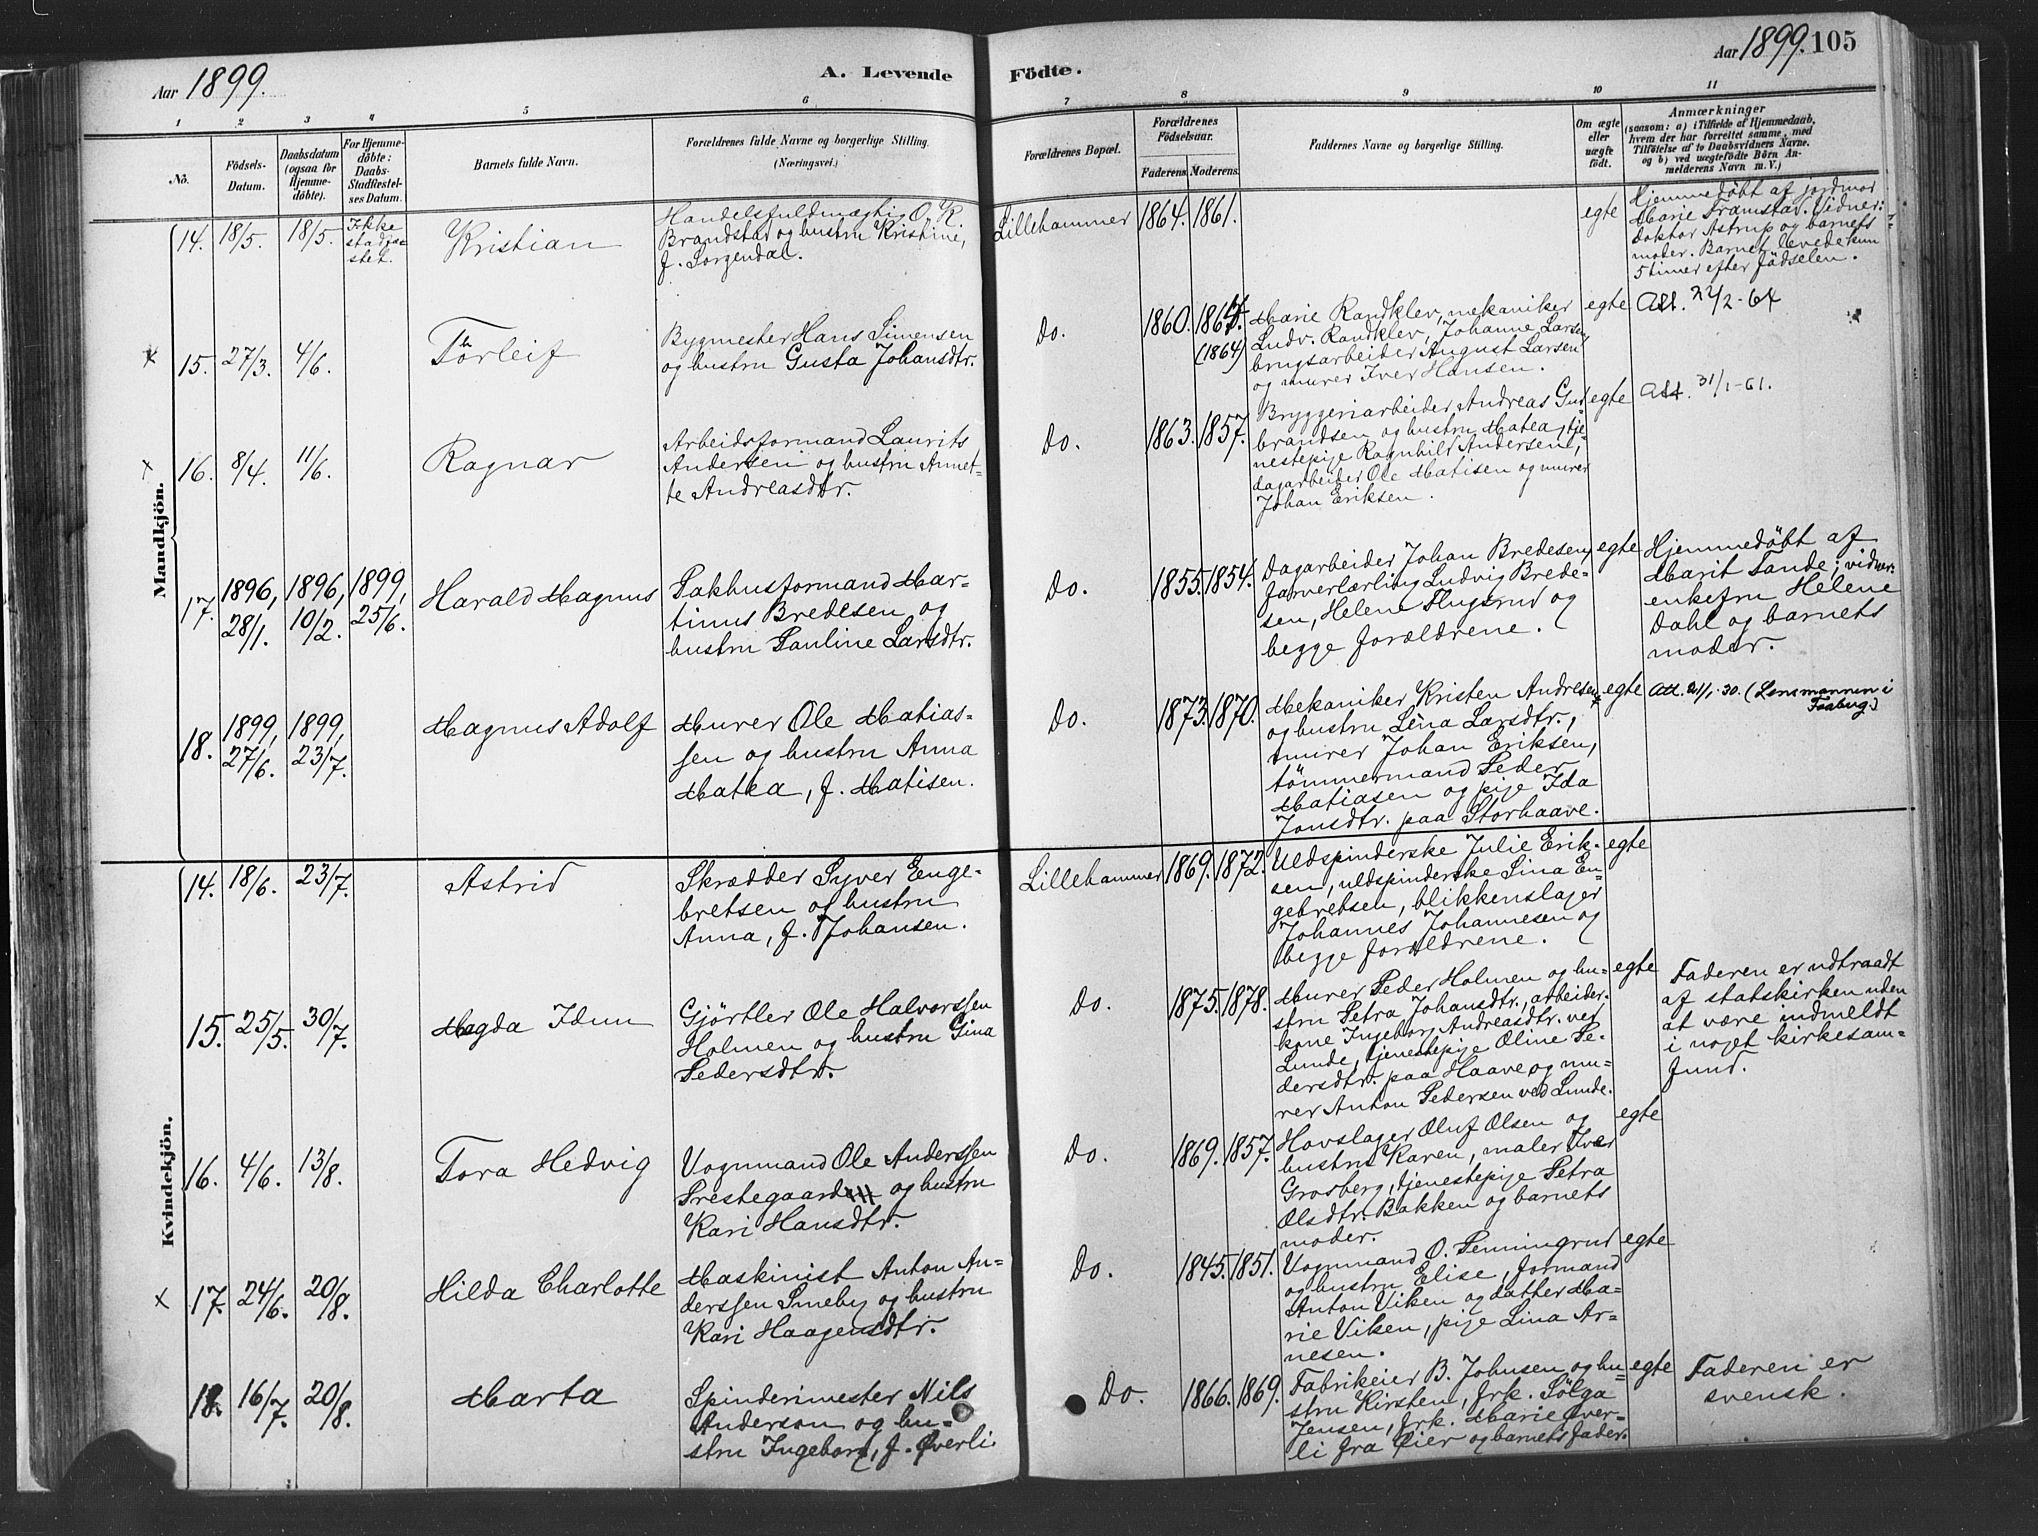 Aar 1899.
A. Levende
Födte.
Aar 1899. 105
1 2 3 4 5 6 7 8 9 10 11
No.
Födsels-
Datum.
Daabsdatum
(ogsaa for
Hjemme-
döbte).
For Hjemme-
döbte:
Daabs-
Stadfæstel-
ses Datum.
Barnets fulde Navn.
Forældrenes fulde Navne og borgerlige Stilling.
(Næringsvei.)
Forældrenes Bopæl.
Forældrenes
Födselsaar.
Faderens. Moderens.
Faddernes Navne og borgerlige Stilling.
Om ægte
eller
uægte
födt.
Anmærkninger
(saasom: a) i Tilfælde af Hjemmedaab,
hvem der har forrettet samme, med
Tilföielse af to Daabsvidners Navne.
og b) ved uægtefödte Börn An-
melderens Navn m.V.)
Mandkjön.
14. 18/5. 18/5.
Ikke
stadfæ-
stet.
Kristian
Handelsfuldmægtig O. K.
Brandstad og hustru Kristine,
f. Sorgendal.
Lillehammer 1864. 1861.
egte
Hjemmedöbt af jordmor
Marie Framstad. Vidner:
doktor Astrup og barnets
moder. Barnet levede kun
5 timer efter födselen.
x 15. 27/3. 4/6.
Törleif
Bygmester Hans Simensen
og hustru Gusta Johansdtr.
Do. 1860. 1864.
(1864)
Marie Randklev, mekaniker
Ludv. Randklev, Johanne Larsen
brugsarbeider August Larsen
og murer Iver Hansen.
egte
Att. 22/2-64
x 16. 8/4. 11/6.
Ragnar
Arbeidsformand Laurits
Andersen og hustru Annet-
te Andreasdtr.
Do. 1863. 1857.
Bryggeriarbeider Andreas Gud-
brandsen og hustru Matea, tje-
nestepige Ragnhild Andersen,
dagarbeider Ole Matisen og murer
Johan Eriksen.
egte
Att. 31/1-61.
17.
1896,
28/1.
1896,
10/2.
1899,
25/6.
Harald Magnus
Pakhusformand Mar-
tinus Bredesen og
hustru Pauline Larsdtr.
Do. 1855. 1854.
Dagarbeider Johan Bredesen,
farverlærling Ludvig Brede-
sen, Helene Flugsrud og
begge forældrene.
egte
Hjemmedöbt af
Marit Sande; vidner:
enkefru Helene
Dahl og barnets
moder.
18.
1899,
27/6.
1899,
23/7.
Magnus Adolf
Murer Ole Matias-
sen og hustru Anna
Matea, f. Matisen.
Do. 1873. 1870.
Mekaniker Kristen Andresen
og hustru Lena Larsdtr.,
murer Johan Eriksen,
tömmermand Peder
Matiasen og pige Ida
Jonsdtr. paa Storhaave.
egte
Att. 21/1-30. (Lensmannen i
Faaberg.)
Kvindekjön.
14. 18/6. 23/7.
Astrid
Skrædder Syver Enge-
bretsen og hustru
Anna, f. Johansen.
Lillehammer 1869. 1872.
Uldspinderske Julie Erik-
sen, uldspinderske Lina En-
gebretsen, blikkenslager
Johannes Johannesen og
begge forældrene.
egte
15. 25/5. 30/7.
Magda Idun
Gjörtler Ole Halvorssen
Holmen og hustru Gina
Pedersdtr.
Do. 1875. 1878.
Murer Peder Holmen og hu-
stru Petra Johansdtr., arbeider-
kone Ingeborg Andreasdtr. ved
Lunde, tjenestepige Oline Pe-
dersdtr. paa Haave og mu-
rer Anton Pedersen ved Lunde.
egte
Faderen er udtraadt
af statskirken uden
at være indmeldt
i noget kirkesam-
fund.
16. 4/6. 13/8.
Tora Hedvig
Vognmand Ole Anderssen
Prestegaard og hustru
Kari Hansdtr.
Do. 1869. 1857.
Hovslager Oluf Olsen og
hustru Karen, maler Ivar
Grosberg, tjenestepige Petra
Olsdtr. Bakken og barnets
moder.
egte
x 17. 24/6. 20/8.
Hilda Charlotte
Maskinist Anton An-
derssen Smeby og hustru
Kari Haagensdtr.
Do. 1845. 1851.
Vognmand O. Senningrud
og hustru Elise, formand
Anton Viken og datter Ma-
rie Viken, pige Lina Ar-
nesen.
egte
18. 16/7. 20/8.
Marta
Spinderimester Nils
Anderson og hu-
stru Ingeborg, f. Øverli
Do. 1866. 1869.
Fabrikeier B. Johnsen og hu-
stru Kirsten, frk. Sölga
Jensen, frk. Marie Øver-
li fra Øier og barnets fader.
egte
Faderen er
svensk.